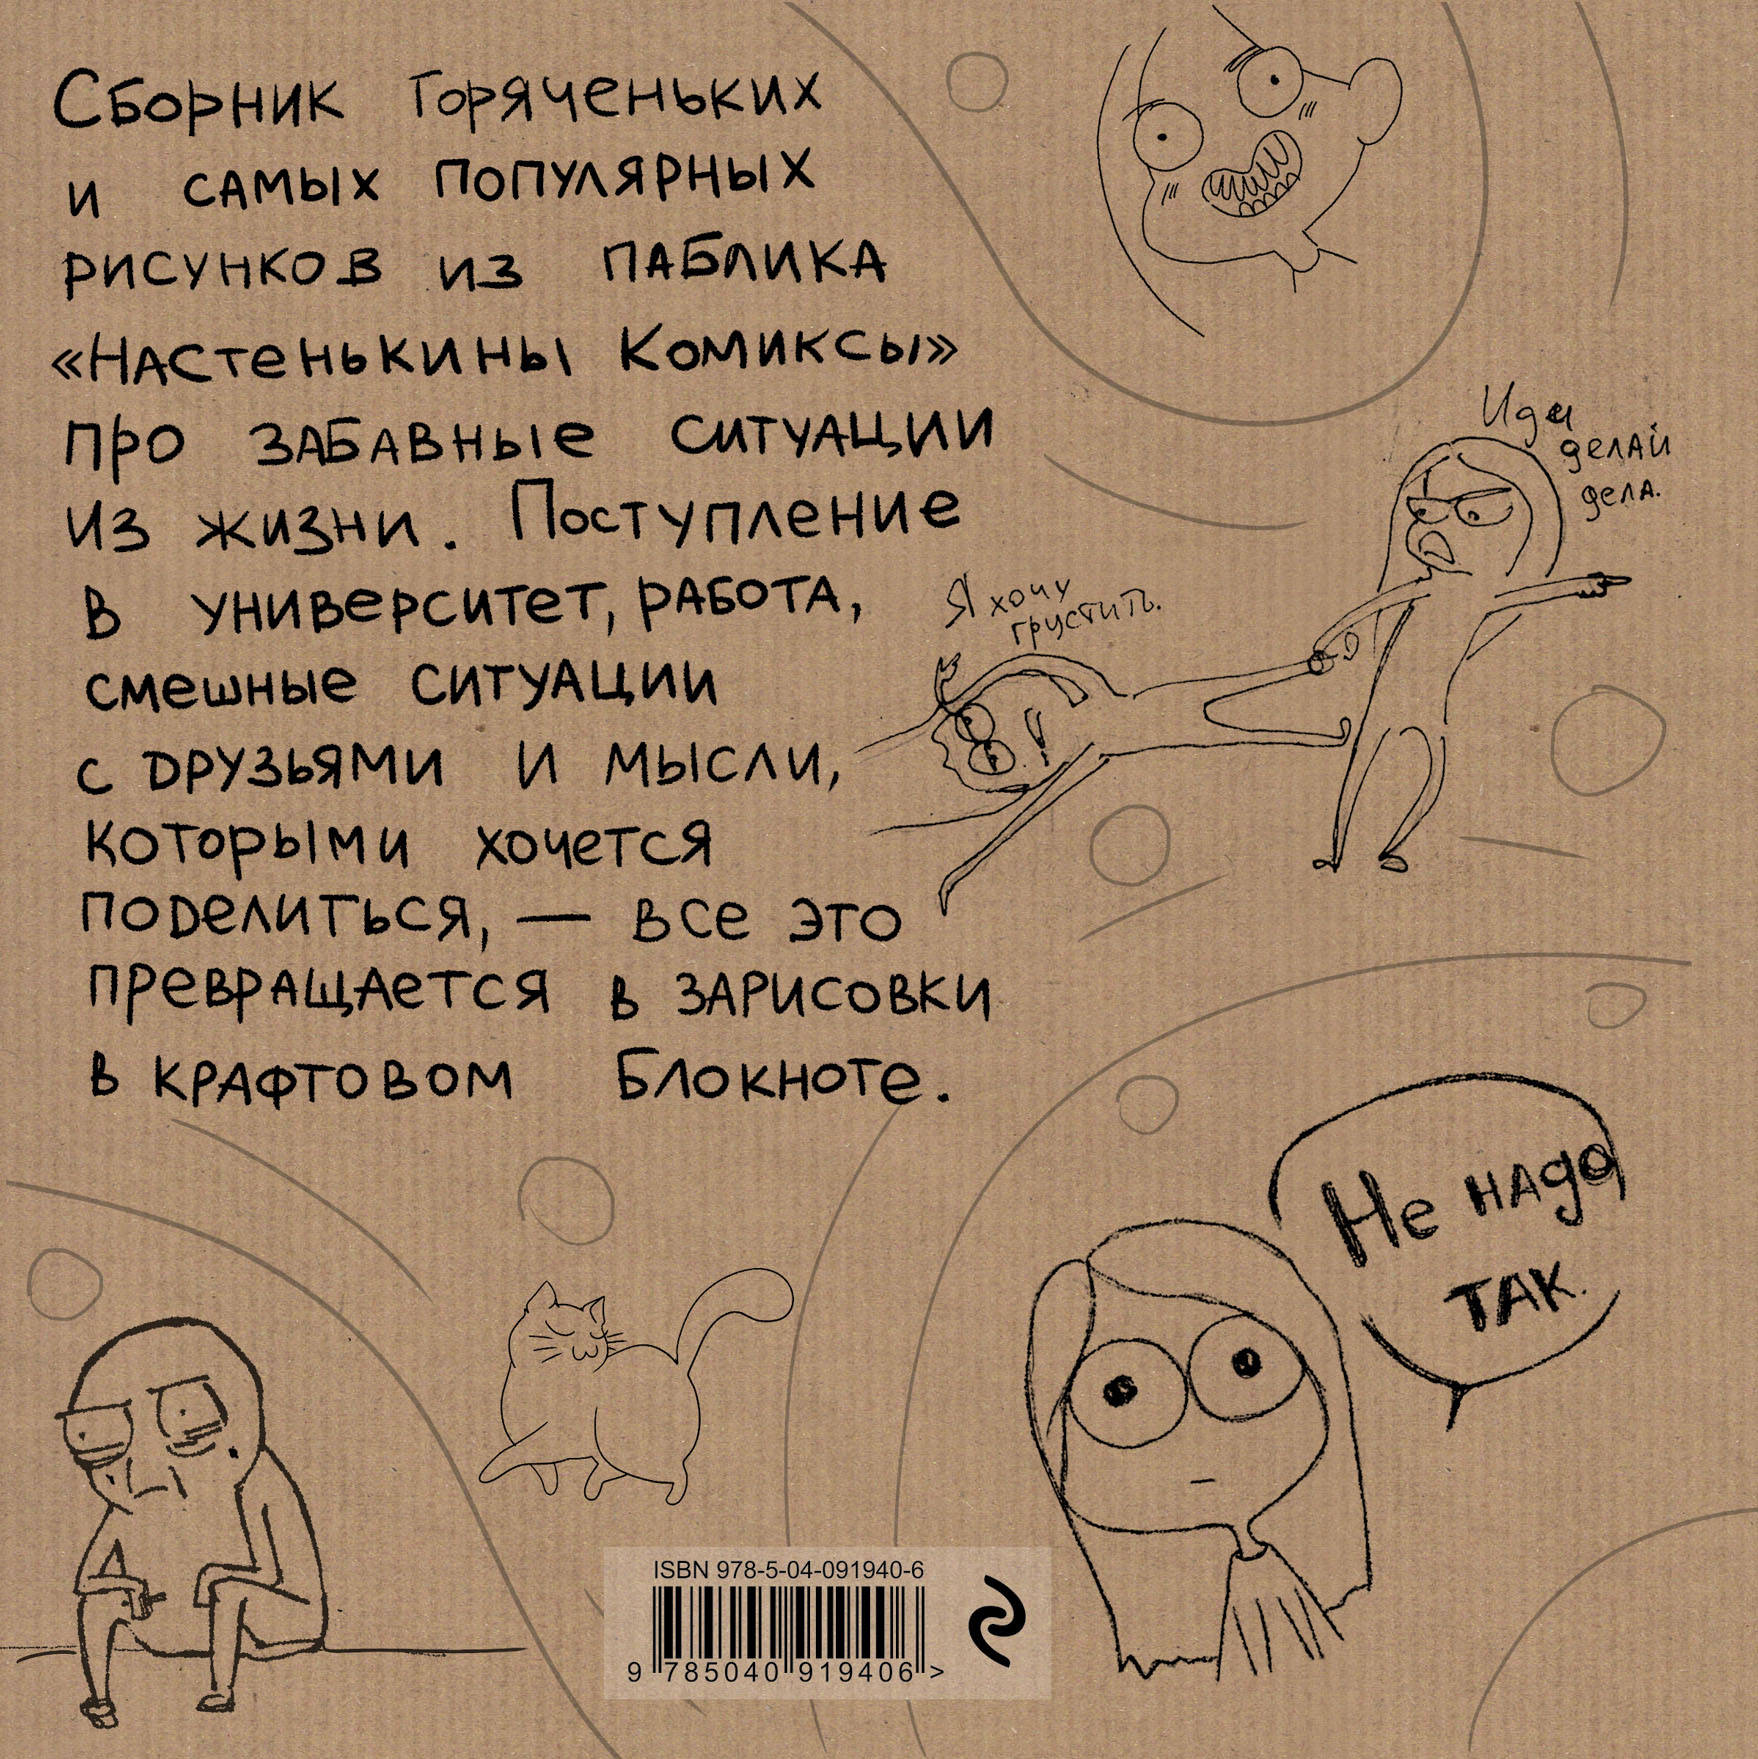 Сборник горяченьких
и самых популярных
рисунков из паблика
«Настенькины Комиксы»
про забавные ситуации
из жизни. Поступление
в университет, работа,
смешные ситуации
с друзьями и мысли,
которыми хочется
поделиться, — все это
превращается в зарисовки
в крафтовом блокноте.
Иди
делай
дела.
Я хочу
грустить.
Не надо
так.
ISBN 978-5-04-091940-6
9 785040 919406 >